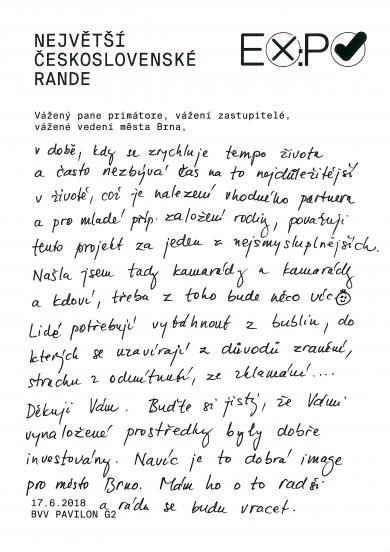 NEJVĚTŠÍ
ČESKOSLOVENSKÉ
RANDE
EX:PO
Vážený pane primátore, vážení zastupitelé,
vážené vedení města Brna,
v době, kdy se zrychluje tempo života
a často nezbývá čas na to nejdůležitější
v životě, což je nalezení vhodného partnera
a pro mladé příp. založení rodiny, považuji
tento projekt za jeden z nejsmysluplnějších.
Našla jsem tady kamarády a kamarádky
a kdoví, třeba z toho bude něco víc
Lidé potřebují vytáhnout z bublin, do
kterých se uzavírají z důvodů zranění,
strachu z odmítnutí, ze zklamání....
Děkuji Vám. Buďte si jistý, že Vámi
vynaložené prostředky byly dobře
investovány. Navíc je to dobrá image
pro město Brno. Mám ho o to radši
17.6.2018 a ráda se budu vracet.
BVV PAVILON G2